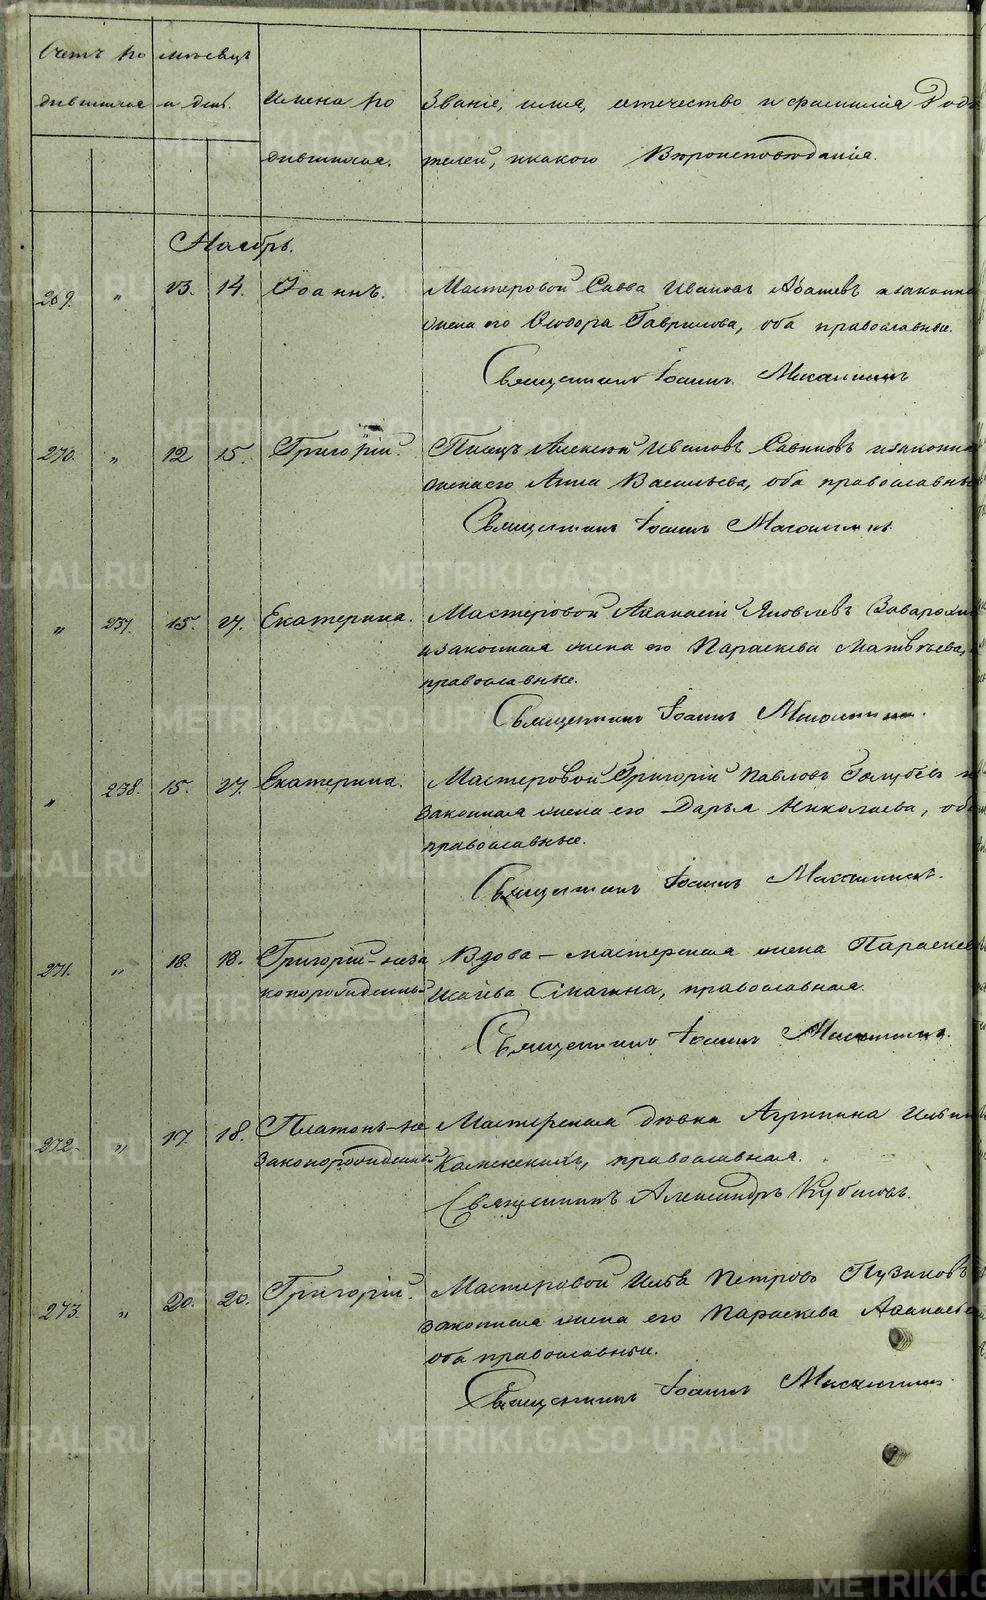 Счетъ ро мѣсяцъ
дившихся и день. Имена ро Званіе, имя, отечество и фамилія Роди
дившихся. телей, и какого Вѣроисповѣданія.
Ноябрь.
269. " 13. 14. Іоаннъ. Мастеровой Савва Ивановъ и законна
жена его Ѳеодора Гаврилова, оба православные.
Священникъ Іоаннъ
270. " 12 15. Григорій. Писецъ Алексѣй Ивановъ Савиновъ и законна
жена его Анна Васильева, оба православны
Священникъ Іоаннъ
" 237. 15. 27. Екатерина. Мастеровой Аѳанасій Яковлевъ
и законная жена его Параскева Матвѣева,
православные.
Священникъ Іоаннъ
" 238. 15. 27. Екатерина. Мастеровой Григорій Павловъ Голубевъ и
законная жена его Дарья Николаева, оба
православные.
Священникъ Іоаннъ
271. " 18. 18. Григорій - неза Вдова - мастерская жена Параскев
коннорожденный Исаева православная.
Священникъ Іоаннъ
272. " 17. 18. Платонъ - не Мастерская дѣвка Агрипина Ильин
законорожденный православная.
Священникъ Александръ
273. " 20. 20. Григорій. Мастеровой Илья Петровъ Пузиковъ
законная жена его Параскева
оба православные.
Священникъ Іоаннъ
METRIKI.GASO-URAL.RU